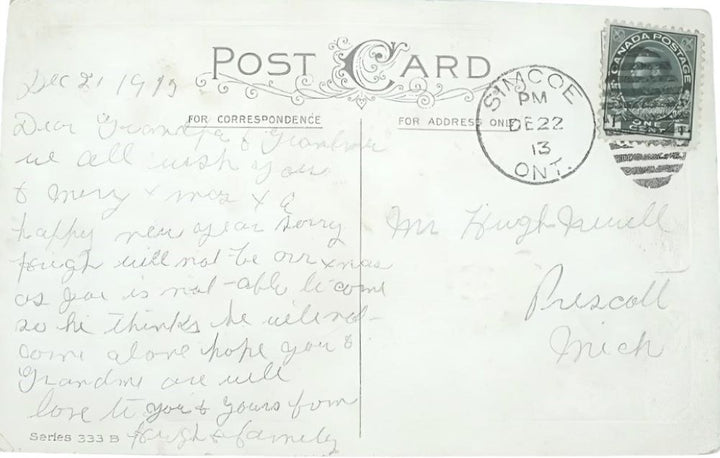 POST CARD
FOR CORRESPONDENCE
FOR ADDRESS ONLY
CANADA POSTAGE
ONE CENT
1 1
SIMCOE
PM
DE 22
13
ONT.
Dec 21 1913
Dear Grandpa & Grandma
we all wish you
a mery x mas & a
happy new year sorry
Hugh will not be our xmas
as is not able to come
so he thinks he will not
come alone hope you &
Grandma are well
love to you & yours from
Hugh & family
Mr Hugh
Prescott
Mich
Series 333 B